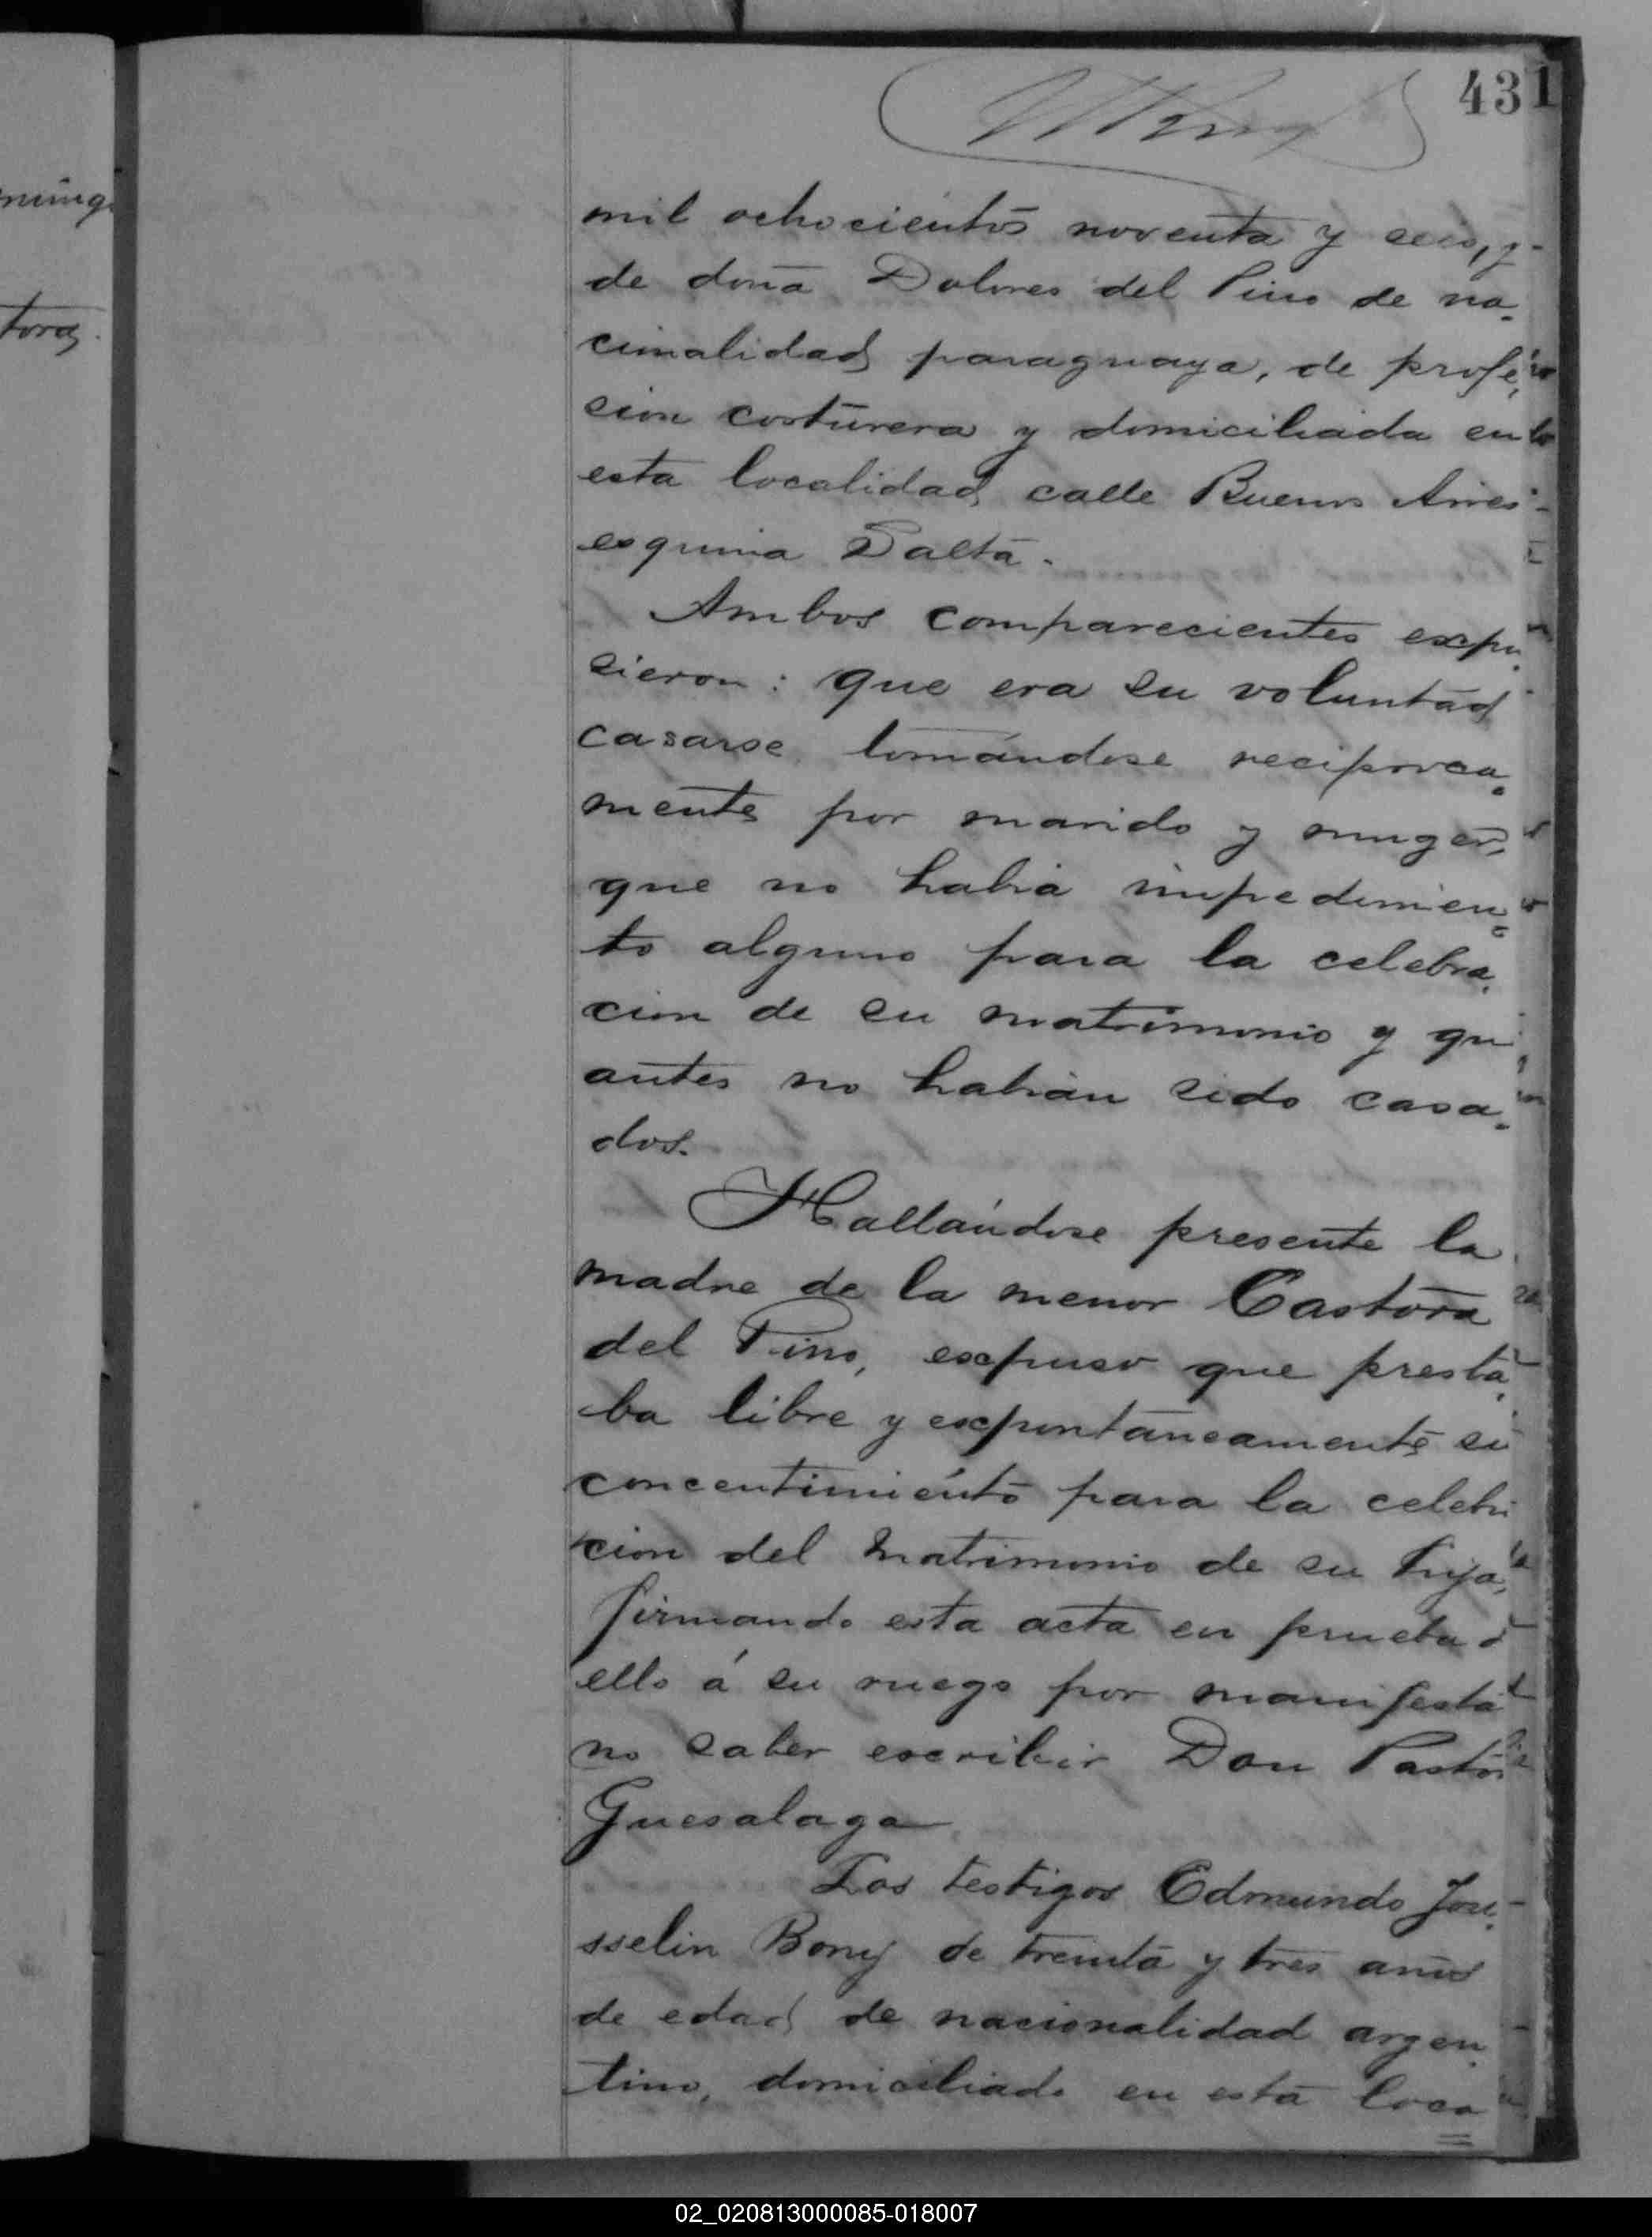 431
mil ochocientos noventa y seis, y
de doña Dolores del Pino de na-
cionalidad paraguaya, de profe-
sion costurera y domiciliada en
esta localidad calle Buenos Aires
esquina Salta.
Ambos comparecientes expu-
sieron: que era su voluntad
casarse tomándose reciproca-
mente por marido y muger,
que no habia impedimien-
to alguno para la celebra-
cion de su matrimonio y qu
antes no habian sido casa-
dos.
Hallándose presente la
madre de la menor Castora
del Pino, expuso que presta-
ba libre y expontaneamente su
concentimiento para la celebr
cion del matrimonio de su hija,
firmando esta acta en prueba d
ello á su ruego por manifesta
no saber escribir Don Pastor
Guesalaga
Los testigos Edmundo Jou-
sselin Bony de treinta y tres años
de edad de nacionalidad argen-
tino, domiciliado en esta loca
02_020813000085-018007